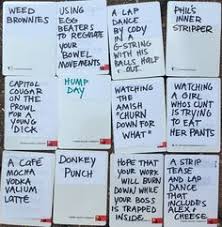 WEED
BROWNIES
USING
EGG
BEATERS TO
REGULATE
YOUR
BOWEL
MOVEMENTS
A LAP
DANCE
BY CODY
IN A
G-STRING
WITH HIS
BALLS HALF
OUT.
PHIL'S
INNER
STRIPPER
CAPITOL
COUGAR
ON THE
PROWL
FOR A
YOUNG
DICK
HUMP
DAY
WATCHING
THE
AMISH
"CHURN
DOWN FOR
WHAT"
WATCHING
A GIRL
WHOS CUNT
IS TRYING
TO EAT
HER
PANTES
A CAFÉ
MOCHA
VODKA
VALIUM
LATTE
DONKEY
PUNCH
HOPE THAT
YOUR WORK
WILL
BURN
DOWN WHILE
YOUR BOSS
IS TRAPPED
INSIDE...
A STRIP
TEASE AND
LAP DANCE
THAT
INCLUDES
ALEX +
CHEESE